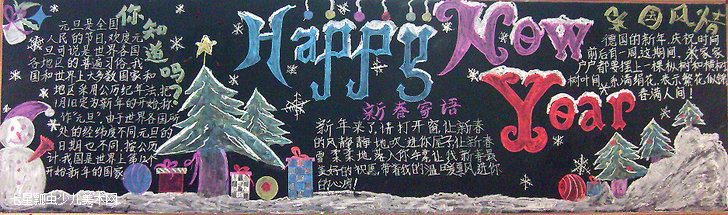 你知道吗?
元旦是全国
人民的节日,欢度元
旦可说是世界各国
各地区的普遍习俗.我
国和世界上大多数国家和
地区采用公历纪年法,把
1月1日定为新年的开始,称
作"元旦".由于世界各国所
处的经纬度不同,元旦的
日期也不同,按公历
计,我国是世界上第12个
开始新的国家
Happy Now
Yoar
新春寄语
新年来了,请打开窗,让新春
的风静静地吹进你屋子,让新春
雪
美好的祝愿,带着我的温
的心扉!
异国风俗
德国的新年,庆祝时间
前后有一周,这期间,家家
户户都要摆上一棵枞树和横树
树叶间系满绢花,表示繁花似锦
春满人间!
七星瓢虫少儿美术网